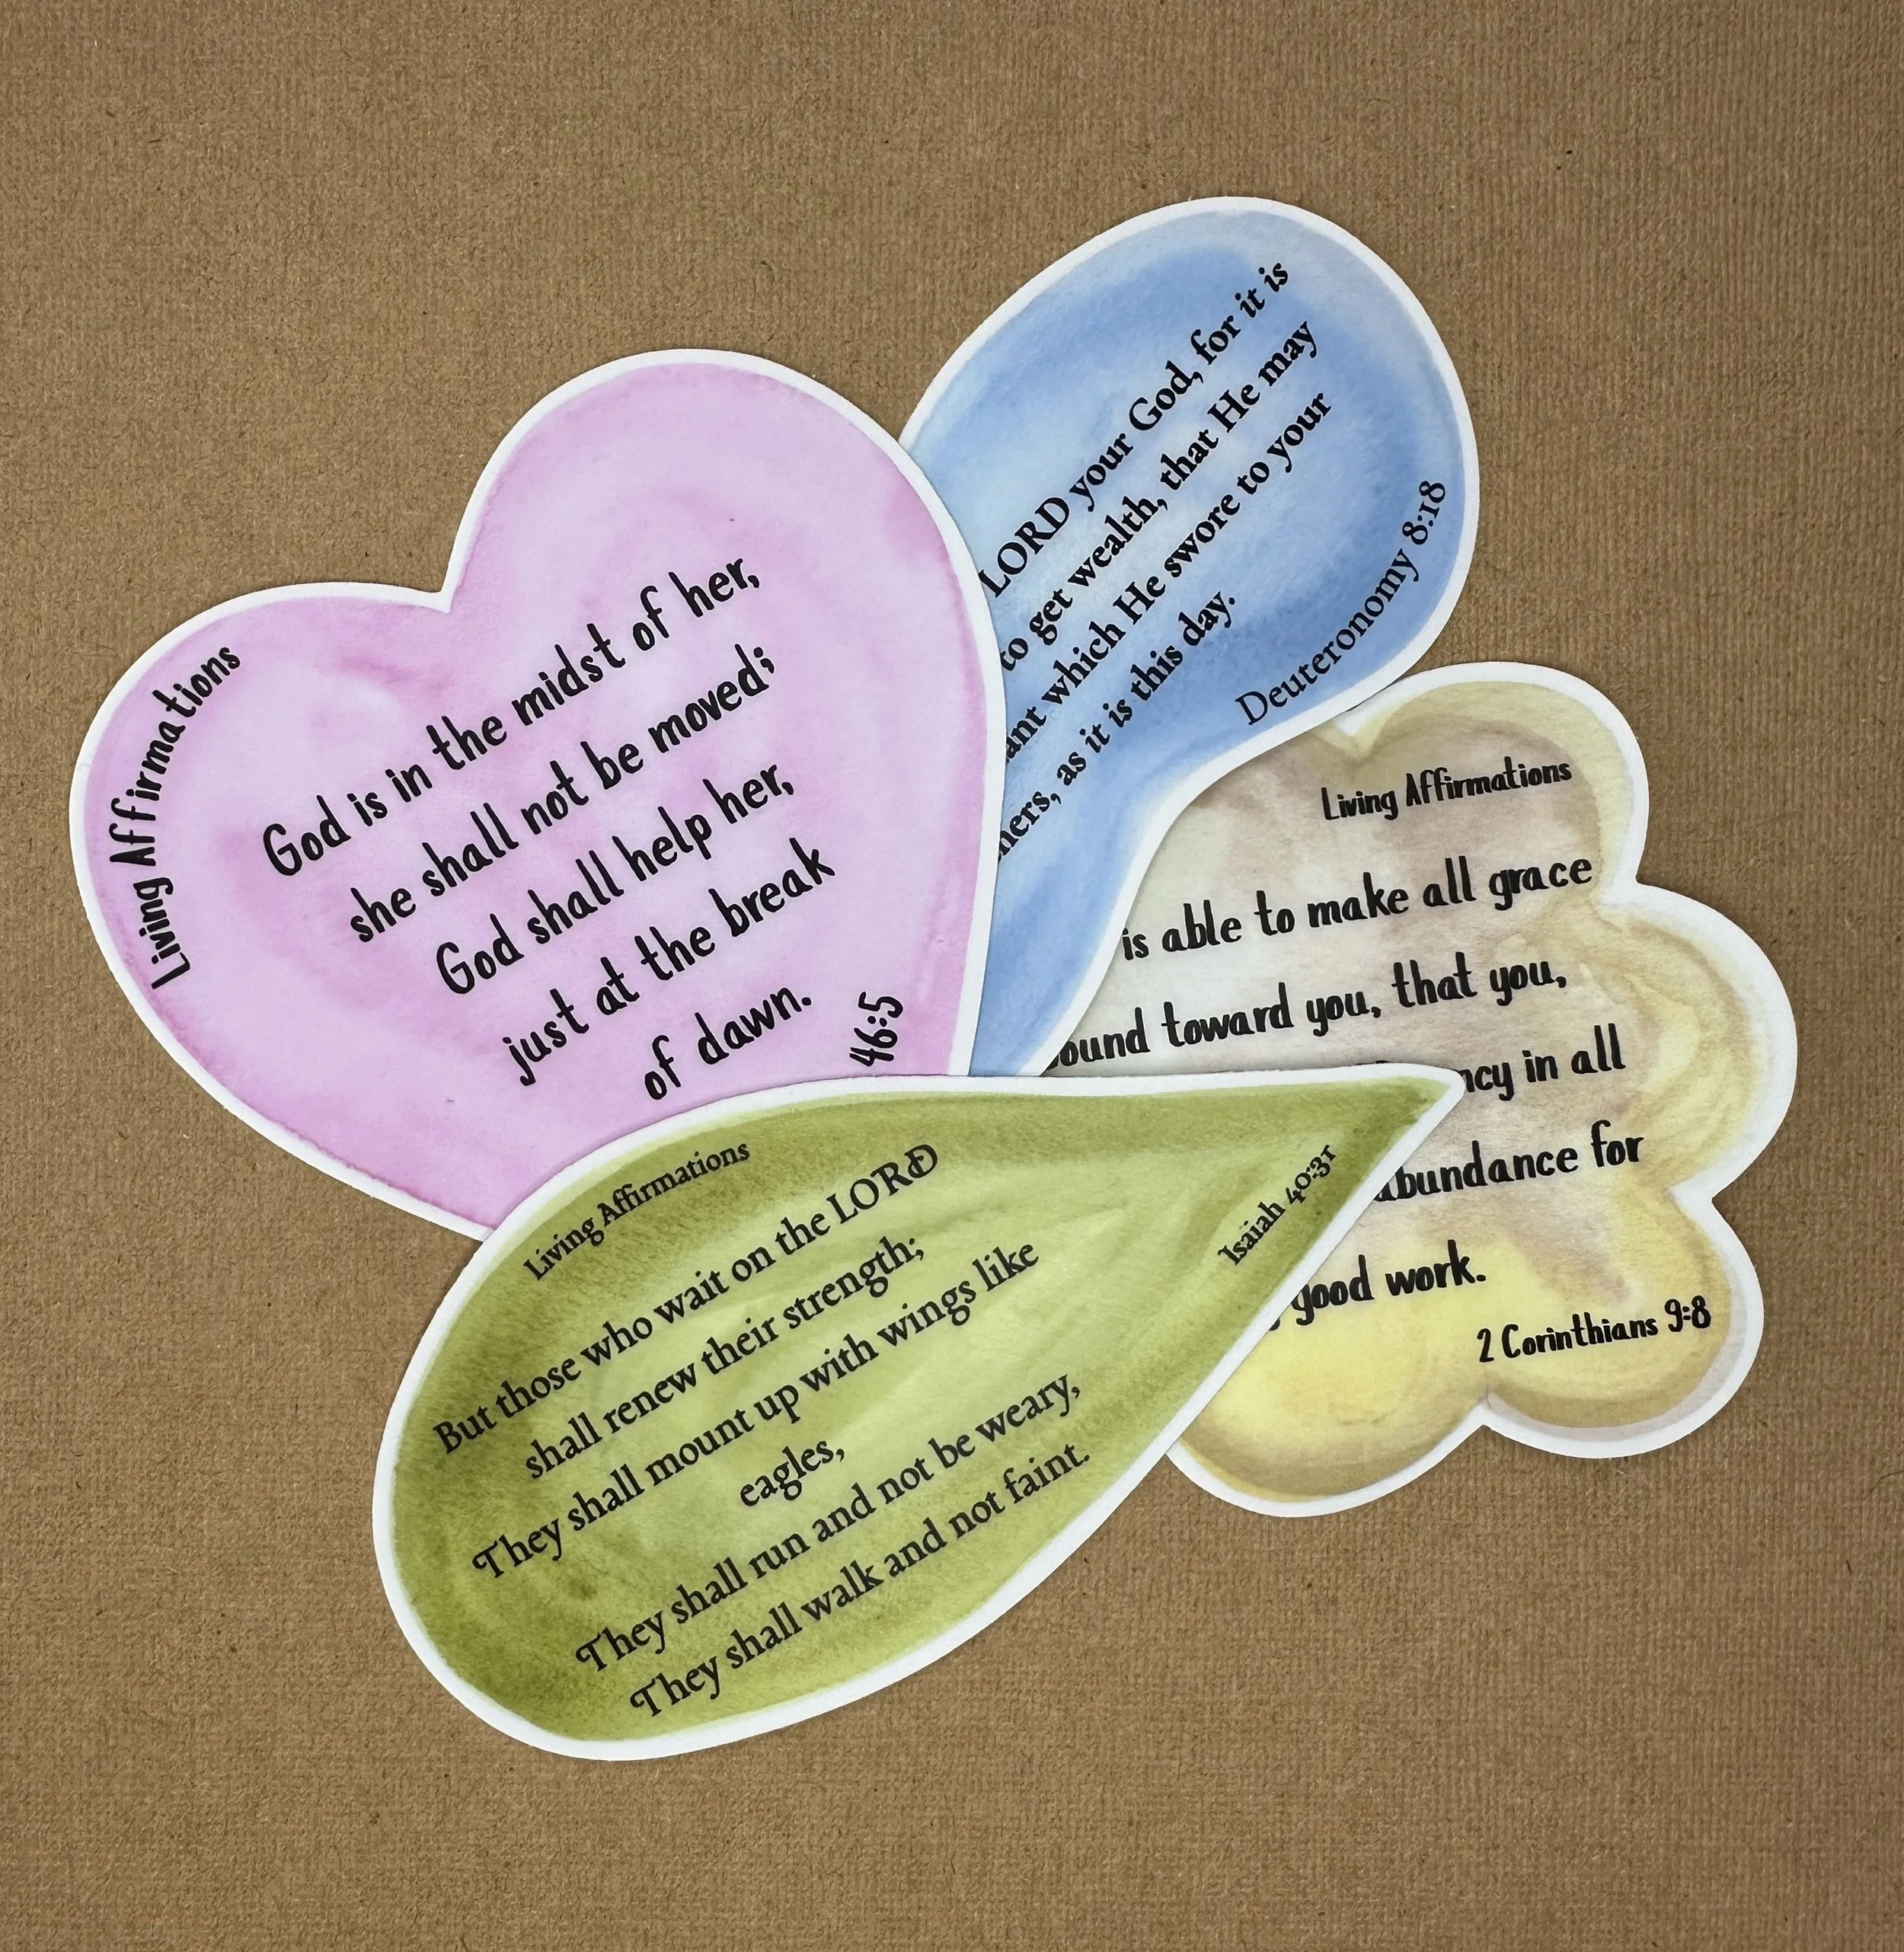 Living Affirmations
God is in the midst of her,
she shall not be moved;
God shall help her,
just at the break
of dawn.
46:5
LORD your God, for it is
to get wealth, that He may
which He swore to your
as it is this day.
Deuteronomy 8:18
Living Affirmations
is able to make all grace
toward you, that you,
in all
for
good work.
2 Corinthians 9:8
Living Affirmations
But those who wait on the LORD
shall renew their strength;
They shall mount up with wings like
eagles,
They shall run and not be weary,
They shall walk and not faint.
Isaiah 40:31